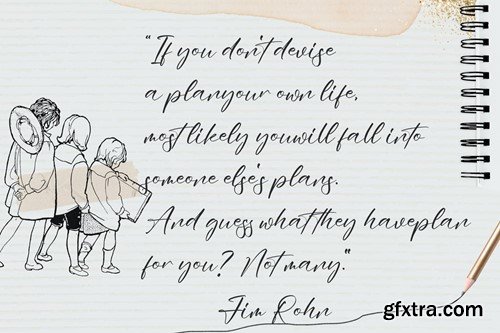 "If you don't devise
a planyour own life,
most likely youwill fall into
someone else's plans.
And guess whatthey haveplan
for you? Not many."
Jim Rohn
gfxtra.com